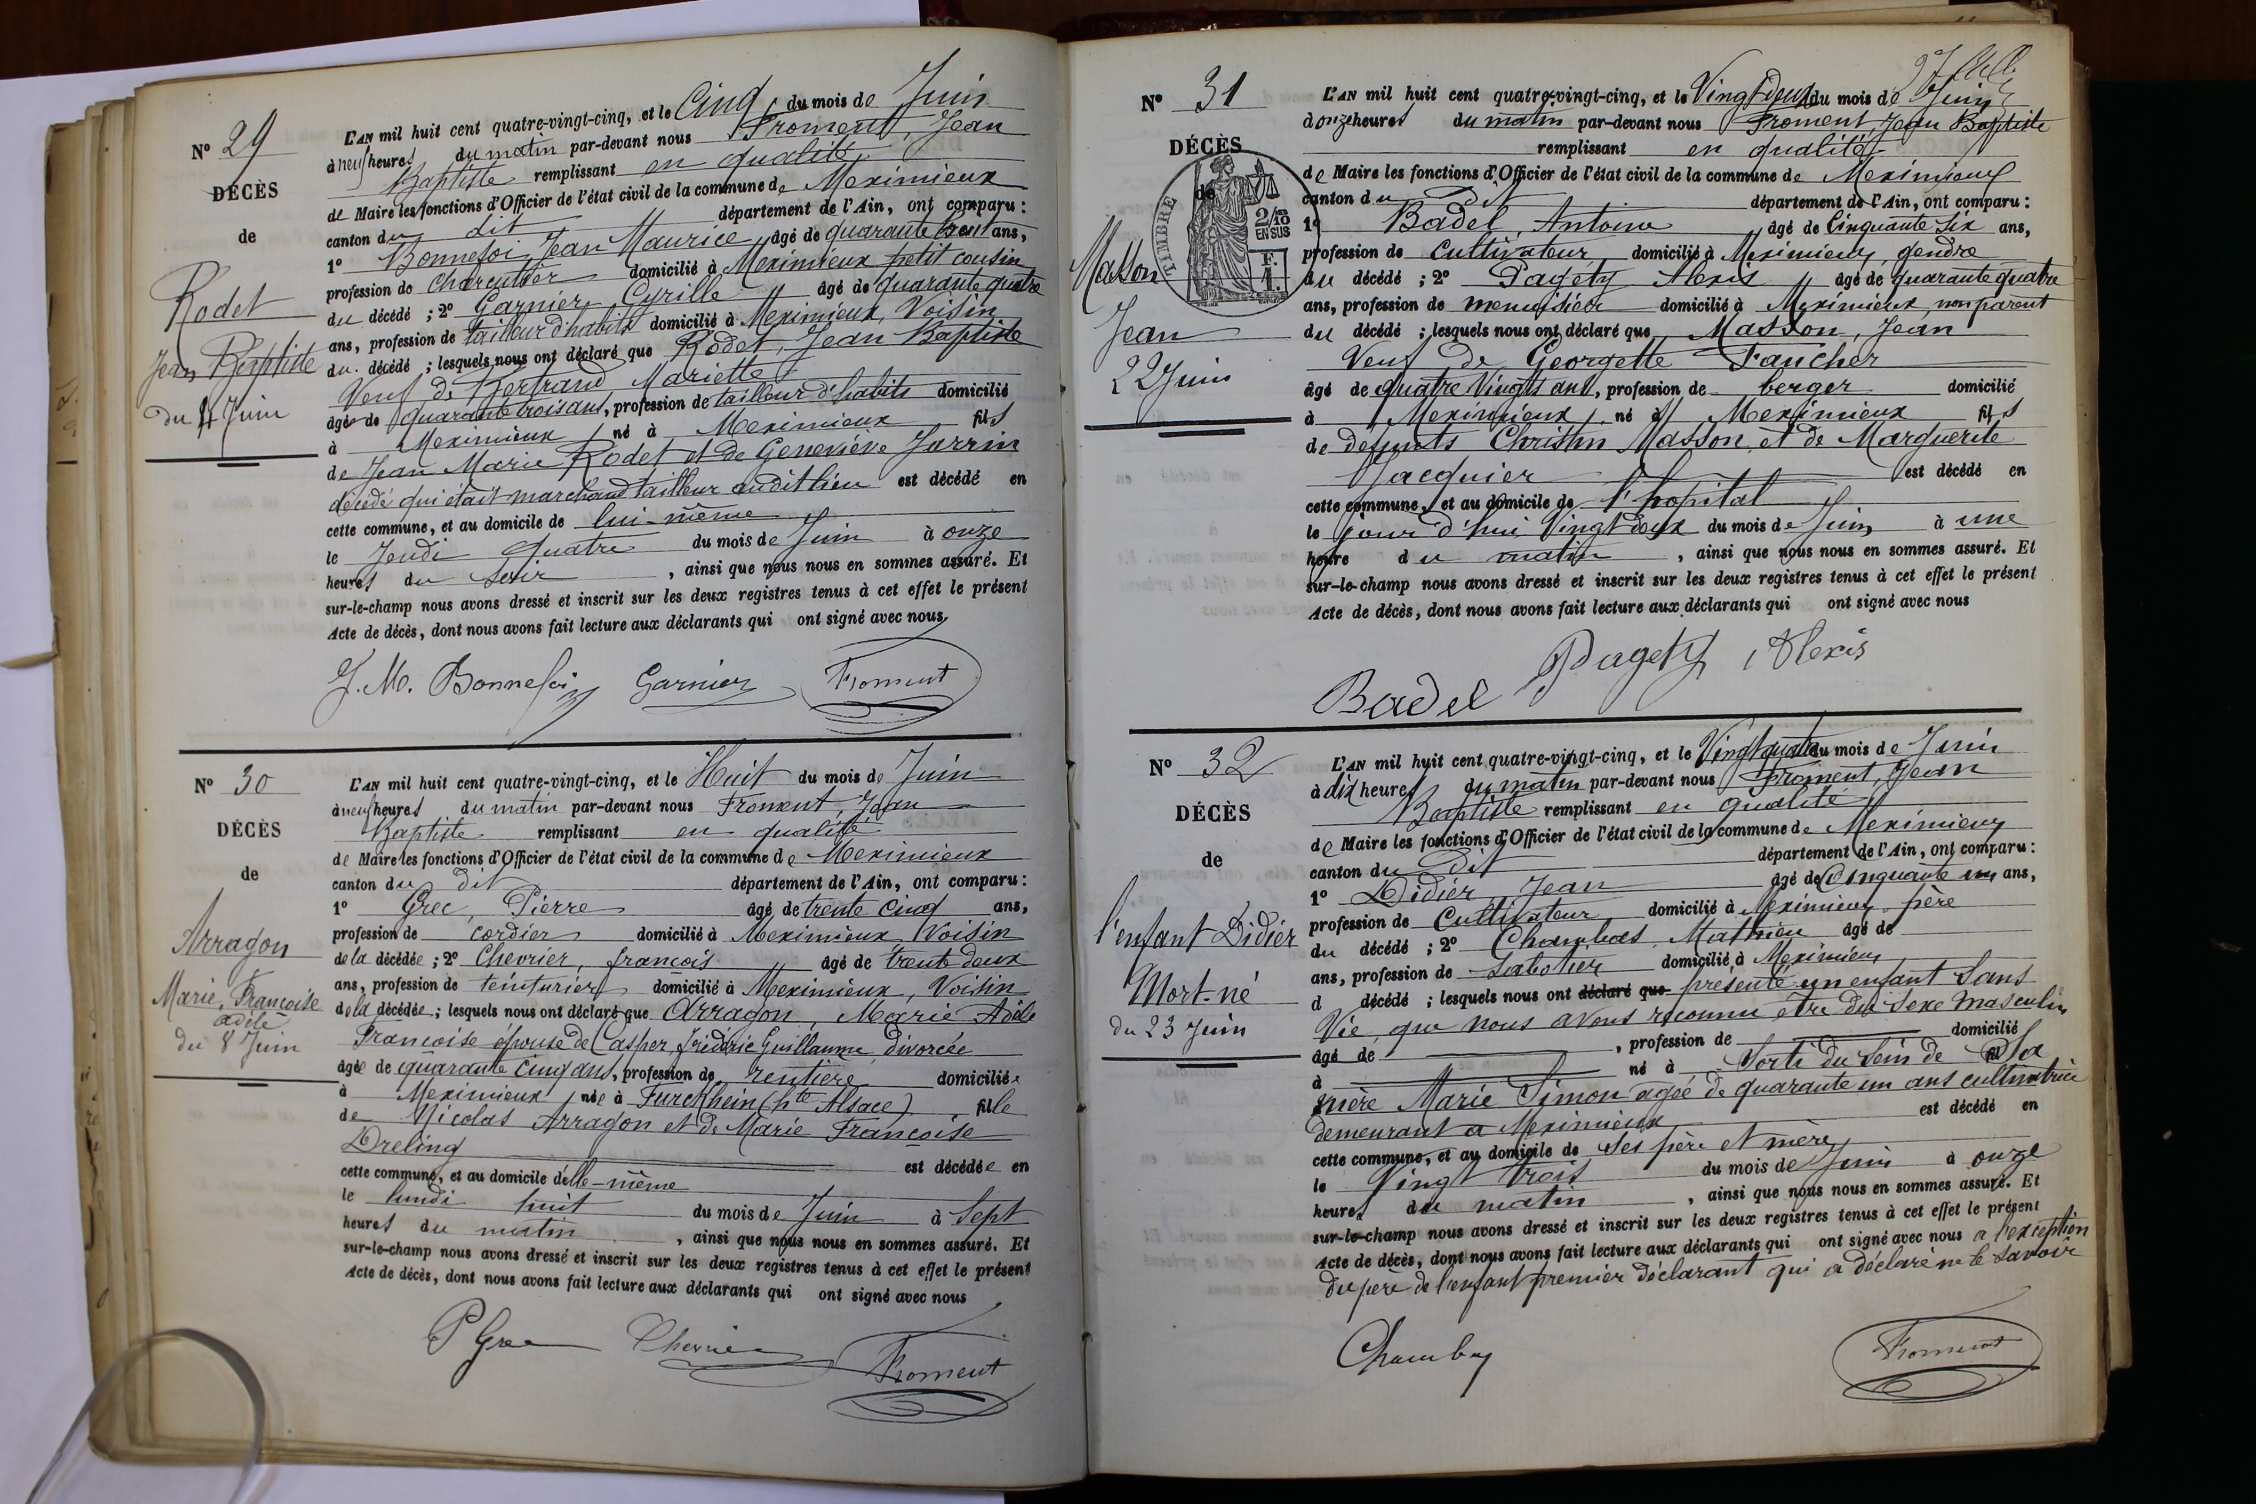 N° 29
DÉCÈS
de
Rodet
Jean Baptiste
du 4 Juin
L'AN mil huit cent quatre-vingt-cinq, et le Cinq du mois de Juin
à neuf heures du matin par-devant nous Froment, Jean
Baptiste remplissant en qualité
de Maire les fonctions d'Officier de l'état civil de la commune de Meximieux
canton du dit département de l'Ain, ont comparu :
1° Bonnefoi, Jean Maurice âgé de quarante ans,
profession de charcutier domicilié à Meximieux petit cousin
du décédé ; 2° Garnier Cyrille âgé de quarante quatre
ans, profession de tailleur d'habits domicilié à Meximieux, Voisin
du décédé ; lesquels nous ont déclaré que Rodet, Jean Baptiste
Veuf de Bertrand Mariette
âgé de quarante trois ans, profession de tailleur d'habits domicilié
à Meximieux né à Meximieux fils
de Jean Marie Rodet et de Geneviève Jarrin
décédé qui était marchand tailleur audit lieu est décédé en
cette commune, et au domicile de lui-même
le Jeudi quatre du mois de Juin à onze
heures du soir , ainsi que nous nous en sommes assuré. Et
sur-le-champ nous avons dressé et inscrit sur les deux registres tenus à cet effet le présent
Acte de décès, dont nous avons fait lecture aux déclarants qui ont signé avec nous
J. M. Bonnefoi Garnier Froment
N° 30
DÉCÈS
de
Arragon
Marie, Françoise
adèle
du 8 Juin
L'AN mil huit cent quatre-vingt-cinq, et le Huit du mois de Juin
à neuf heures du matin par-devant nous Froment, Jean
Baptiste remplissant en qualité
de Maire les fonctions d'Officier de l'état civil de la commune de Meximieux
canton du dit département de l'Ain, ont comparu :
1° Grec, Pierre âgé de trente cinq ans,
profession de cordier domicilié à Meximieux Voisin
de la décédée ; 2° Chevrier, françois âgé de trente deux
ans, profession de teinturier domicilié à Meximieux, Voisin
de la décédée ; lesquels nous ont déclaré que Arragon, Marie Adèle
Françoise épouse de Casper, frédéric Guillaume, divorcée
âgée de quarante cinq ans, profession de rentière domiciliée
à Meximieux née à Turckhein (hte Alsace) fille
de Nicolas Arragon et de Marie Françoise
Dreling est décédée en
cette commune, et au domicile d'elle-même
le lundi huit du mois de Juin à sept
heures du matin , ainsi que nous nous en sommes assuré. Et
sur-le-champ nous avons dressé et inscrit sur les deux registres tenus à cet effet le présent
Acte de décès, dont nous avons fait lecture aux déclarants qui ont signé avec nous
P Grec Chevrier Froment
N° 31
DÉCÈS
de
TIMBRE
2/10 EN SUS
F. 1.
Masson
Jean
22 Juin
L'AN mil huit cent quatre-vingt-cinq, et le Vingt deux du mois de Juin
à onze heures du matin par-devant nous Froment, Jean Baptiste
remplissant en qualité
de Maire les fonctions d'Officier de l'état civil de la commune de Meximieux
canton du Dit département de l'Ain, ont comparu :
1° Badel, Antoine âgé de Cinquante six ans,
profession de cultivateur domicilié à Meximieux, gendre
du décédé ; 2° Pagety Alexis âgé de quarante quatre
ans, profession de menuisier domicilié à Meximieux, non parent
du décédé ; lesquels nous ont déclaré que Masson, Jean
Veuf de Georgette Faucher
âgé de quatre Vingts ans, profession de berger domicilié
à Meximieux né à Meximieux fils
de defunts Christin Masson et de Marguerite
Jacquier est décédé en
cette commune, et au domicile de l'hopital
le jour d'hui Vingt deux du mois de Juin à une
heure du matin , ainsi que nous nous en sommes assuré. Et
sur-le-champ nous avons dressé et inscrit sur les deux registres tenus à cet effet le présent
Acte de décès, dont nous avons fait lecture aux déclarants qui ont signé avec nous
Badel Pagety Alexis
N° 32
DÉCÈS
de
l'enfant Didier
Mort-né
du 23 Juin
L'AN mil huit cent quatre-vingt-cinq, et le Vingt quatre du mois de Juin
à dix heures du matin par-devant nous Froment, Jean
Baptiste remplissant en qualité
de Maire les fonctions d'Officier de l'état civil de la commune de Meximieux
canton du Dit département de l'Ain, ont comparu :
1° Didier, Jean âgé de Cinquante un ans,
profession de Cultivateur domicilié à Meximieux père
du décédé ; 2° Chambas, Mathieu âgé de
ans, profession de Sabotier domicilié à Meximieux
d décédé ; lesquels nous ont déclaré que présenté un enfant Sans
Vie, que nous avons reconnu être du sexe masculin
âgé de , profession de domicilié
à né à Sorti du sein de Sa
mère Marie Simon agée de quarante un ans cultivatrice
demeurant à Meximieux est décédé en
cette commune, et au domicile de ses père et mère
le Vingt trois du mois de Juin à onze
heures du matin , ainsi que nous nous en sommes assuré. Et
sur-le-champ nous avons dressé et inscrit sur les deux registres tenus à cet effet le présent
Acte de décès, dont nous avons fait lecture aux déclarants qui ont signé avec nous a l'exception
du père de l'enfant premier déclarant qui a déclaré ne le savoir
Chambas Froment